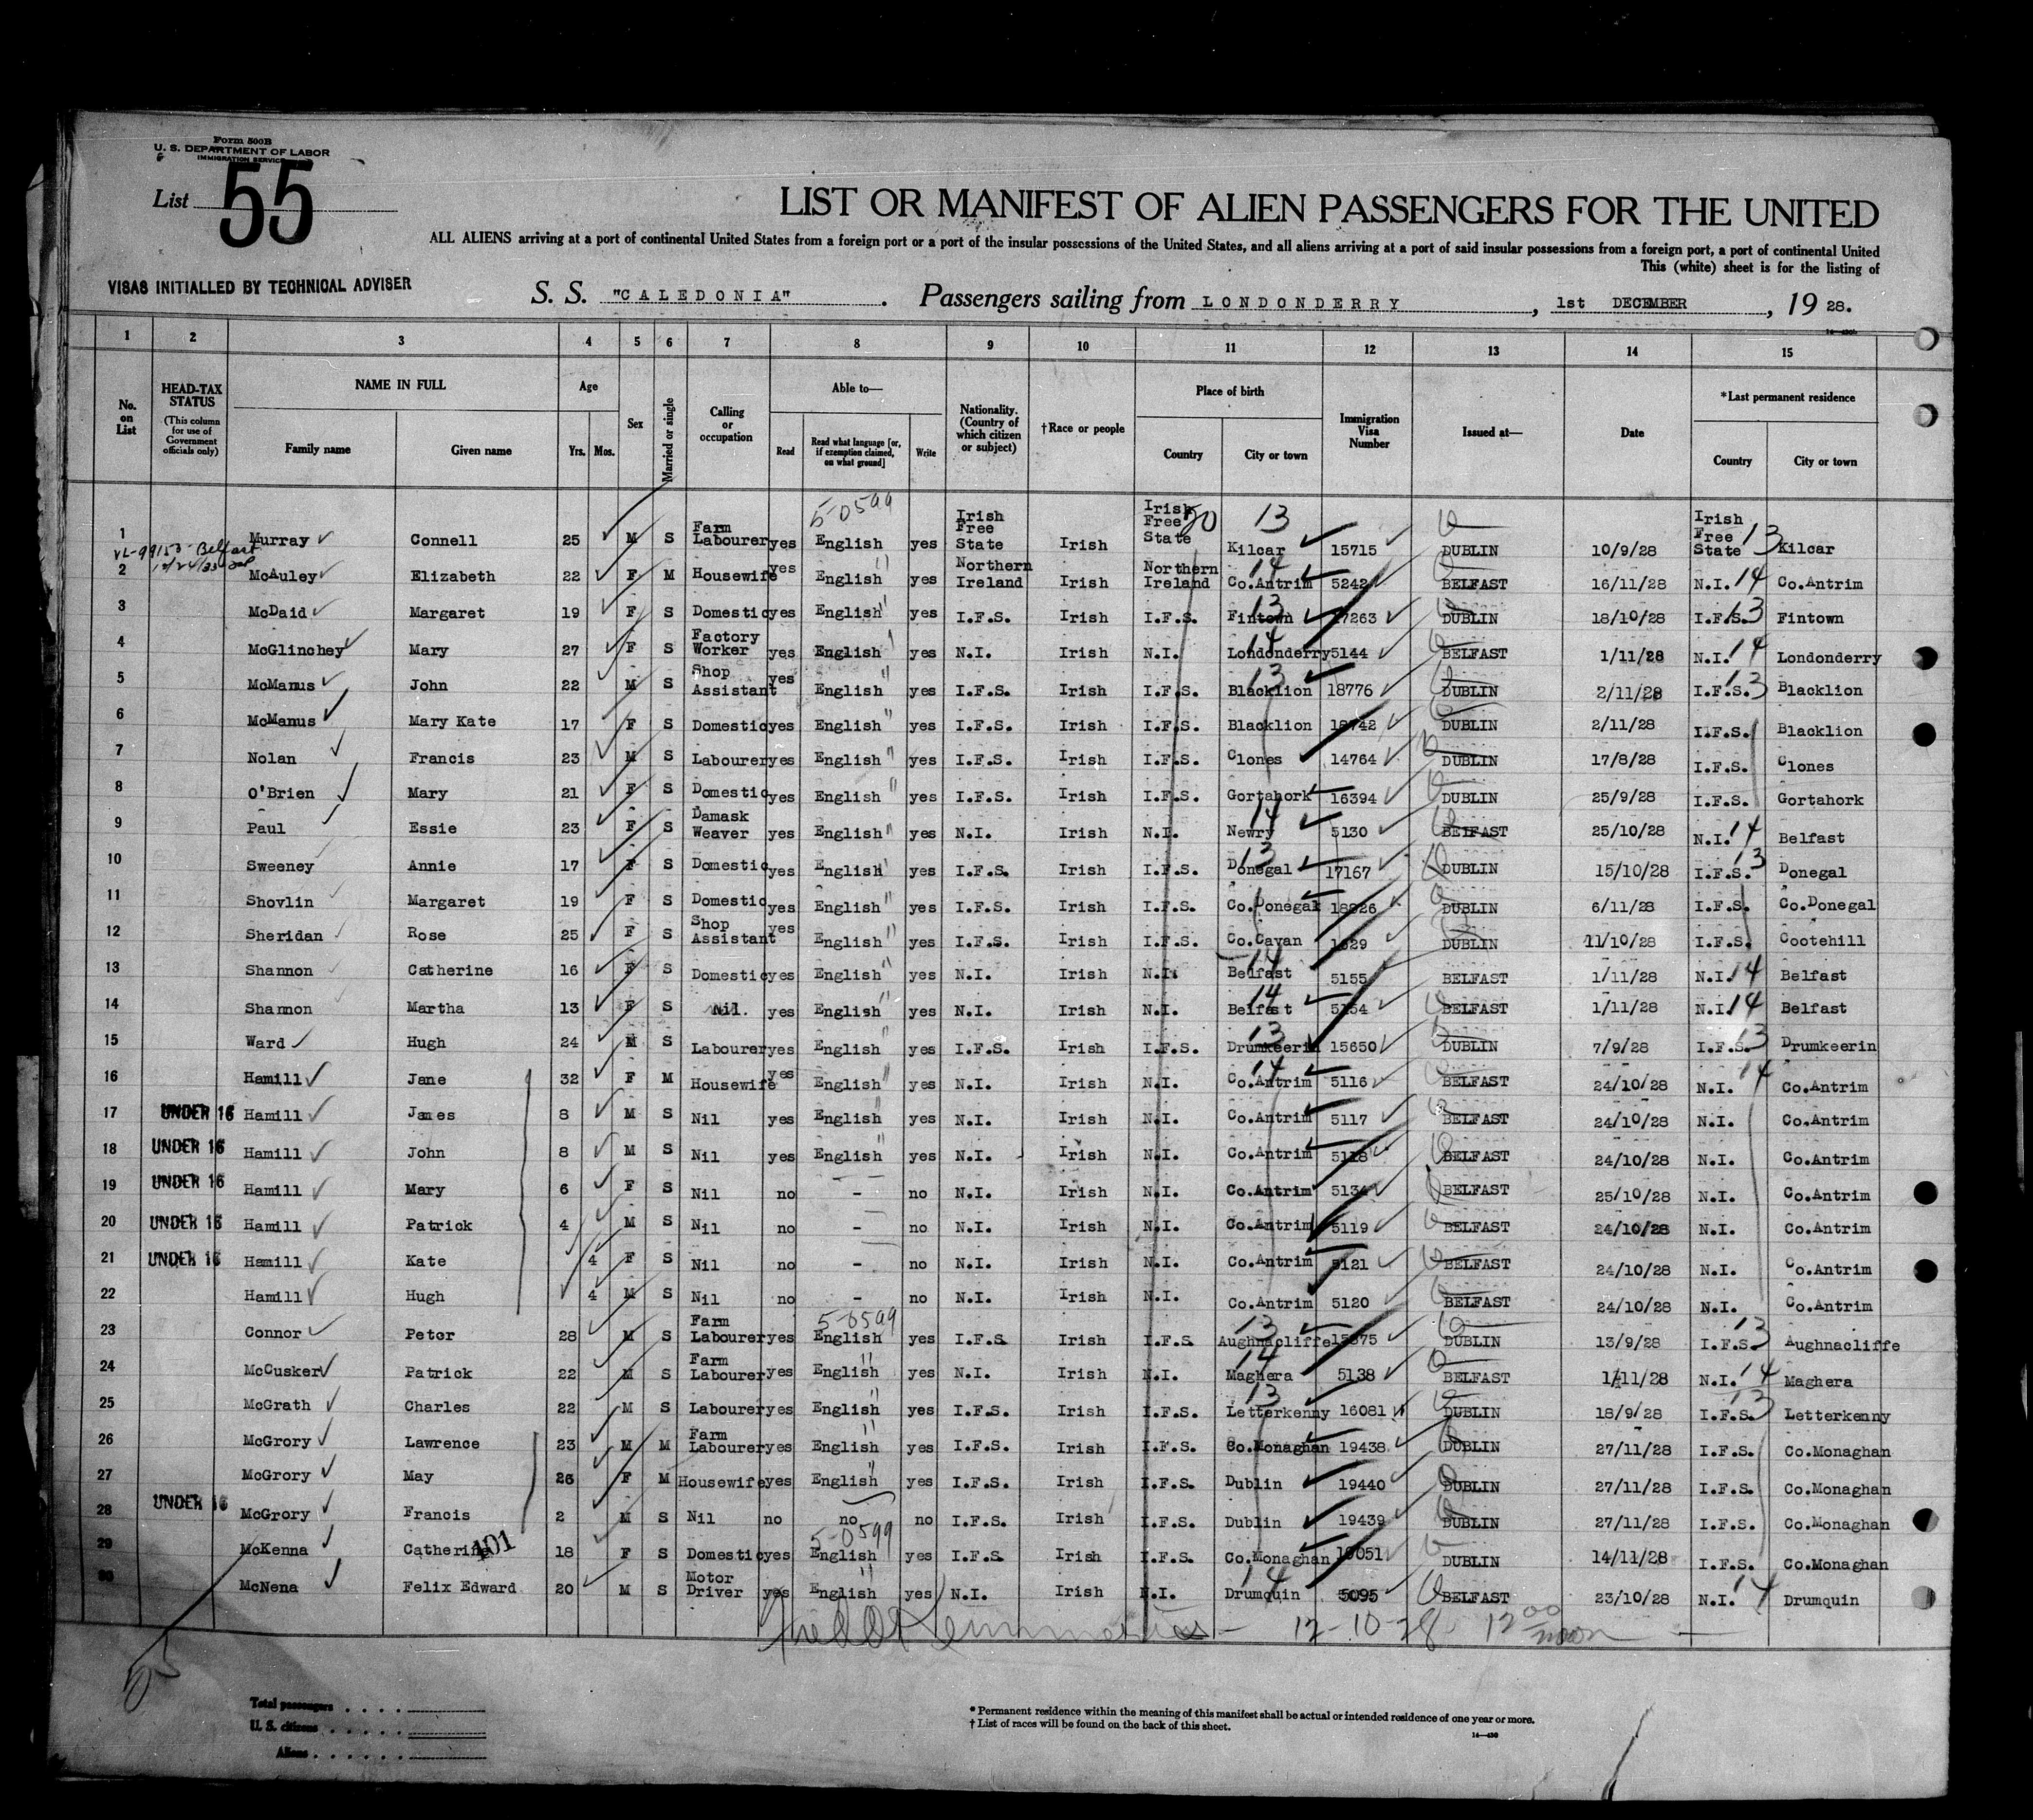 Form 500B
U. S. DEPARTMENT OF LABOR
IMMIGRATION SERVICE
List 55
LIST OR MANIFEST OF ALIEN PASSENGERS FOR THE UNITED
ALL ALIENS arriving at a port of continental United States from a foreign port or a port of the insular possessions of the United States, and all aliens arriving at a port of said insular possessions from a foreign port, a port of continental United
This (white) sheet is for the listing of
VISAS INITIALLED BY TECHNICAL ADVISER
S. S. "CALEDONIA". Passengers sailing from LONDONDERRY, 1st DECEMBER, 19 28.
1 2 3 4 5 6 7 8 9 10 11 12 13 14 15
No. on List
HEAD-TAX STATUS (This column for use of Government officials only)
NAME IN FULL
Family name Given name
Age
Yrs. Mos.
Sex
Married or single
Calling or occupation
Able to—
Read
Read what language [or, if exemption claimed, on what ground]
Write
Nationality. (Country of which citizen or subject)
†Race or people
Place of birth
Country City or town
Immigration Visa Number
Issued at—
Date
*Last permanent residence
Country City or town
5-0599
1 Murray Connell 25 M S Farm Labourer yes English yes Irish Free State Irish Irish Free State 20 13 Kilcar 15715 DUBLIN 10/9/28 Irish Free State 13 Kilcar
Belfast
2 McAuley Elizabeth 22 F M Housewife yes English " yes Northern Ireland Irish Northern Ireland 14 Co.Antrim 5242 BELFAST 16/11/28 N.I. 14 Co.Antrim
3 McDaid Margaret 19 F S Domestic yes English " yes I.F.S. Irish I.F.S. 13 Fintown 17263 DUBLIN 18/10/28 I.F.S. 13 Fintown
4 McGlinchey Mary 27 F S Factory Worker yes English " yes N.I. Irish N.I. 14 Londonderry 5144 BELFAST 1/11/28 N.I. 14 Londonderry
5 McManus John 22 M S Shop Assistant yes English " yes I.F.S. Irish I.F.S. 13 Blacklion 18776 DUBLIN 2/11/28 I.F.S. 13 Blacklion
6 McManus Mary Kate 17 F S Domestic yes English " yes I.F.S. Irish I.F.S. Blacklion DUBLIN 2/11/28 I.F.S. Blacklion
7 Nolan Francis 23 M S Labourer yes English " yes I.F.S. Irish I.F.S. Clones 14764 DUBLIN 17/8/28 I.F.S. Clones
8 O'Brien Mary 21 F S Domestic yes English " yes I.F.S. Irish I.F.S. Gortahork 16394 DUBLIN 25/9/28 I.F.S. Gortahork
9 Paul Essie 23 F S Damask Weaver yes English " yes N.I. Irish N.I. 14 Newry 5130 BELFAST 25/10/28 N.I. 14 Belfast
10 Sweeney Annie 17 F S Domestic yes English " yes I.F.S. Irish I.F.S. 13 Donegal 17167 DUBLIN 15/10/28 I.F.S. 13 Donegal
11 Shovlin Margaret 19 F S Domestic yes English " yes I.F.S. Irish I.F.S. Co.Donegal DUBLIN 6/11/28 I.F.S. Co.Donegal
12 Sheridan Rose 25 F S Shop Assistant yes English " yes I.F.S. Irish I.F.S. Co.Cavan DUBLIN 11/10/28 I.F.S. Cootehill
13 Shannon Catherine 16 F S Domestic yes English " yes N.I. Irish N.I. 14 Belfast 5155 BELFAST 1/11/28 N.I. 14 Belfast
14 Shannon Martha 13 F S Nil. yes English " yes N.I. Irish N.I. 14 Belfast 5154 BELFAST 1/11/28 N.I. 14 Belfast
15 Ward Hugh 24 M S Labourer yes English " yes I.F.S. Irish I.F.S. 13 Drumkeerin 15650 DUBLIN 7/9/28 I.F.S. 13 Drumkeerin
16 Hamill Jane 32 F M Housewife yes English " yes N.I. Irish N.I. 14 Co.Antrim 5116 BELFAST 24/10/28 N.I. 14 Co.Antrim
17 UNDER 16 Hamill James 8 M S Nil yes English " yes N.I. Irish N.I. Co.Antrim 5117 BELFAST 24/10/28 N.I. Co.Antrim
18 UNDER 16 Hamill John 8 M S Nil yes English " yes N.I. Irish N.I. Co.Antrim 5118 BELFAST 24/10/28 N.I. Co.Antrim
19 UNDER 16 Hamill Mary 6 F S Nil no - no N.I. Irish N.I. Co.Antrim 5134 BELFAST 25/10/28 N.I. Co.Antrim
20 UNDER 16 Hamill Patrick 4 M S Nil no - no N.I. Irish N.I. Co.Antrim 5119 BELFAST 24/10/28 N.I. Co.Antrim
21 UNDER 16 Hamill Kate 4 F S Nil no - no N.I. Irish N.I. Co.Antrim 5121 BELFAST 24/10/28 N.I. Co.Antrim
22 Hamill Hugh 4 M S Nil no - no N.I. Irish N.I. Co.Antrim 5120 BELFAST 24/10/28 N.I. Co.Antrim
5-0599
23 Connor Peter 28 M S Farm Labourer yes English yes I.F.S Irish I.F.S 13 Aughnacliffe DUBLIN 13/9/28 I.F.S. 13 Aughnacliffe
24 McCusker Patrick 22 M S Farm Labourer yes English " yes N.I. Irish N.I. 14 Maghera 5138 BELFAST 1/11/28 N.I. 14 Maghera
25 McGrath Charles 22 M S Labourer yes English " yes I.F.S. Irish I.F.S. 13 Letterkenny 16081 DUBLIN 18/9/28 I.F.S. 13 Letterkenny
26 McGrory Lawrence 23 M M Farm Labourer yes English " yes I.F.S. Irish I.F.S. Co.Monaghan 19438 DUBLIN 27/11/28 I.F.S. Co.Monaghan
27 McGrory May 26 F M Housewife yes English " yes I.F.S. Irish I.F.S. Dublin 19440 DUBLIN 27/11/28 I.F.S. Co.Monaghan
28 UNDER 16 McGrory Francis 2 M S Nil no no no I.F.S. Irish I.F.S. Dublin 19439 DUBLIN 27/11/28 I.F.S. Co.Monaghan
5-0599
29 McKenna Catherine 101 18 F S Domestic yes English yes I.F.S. Irish I.F.S. Co.Monaghan DUBLIN 14/11/28 I.F.S. Co.Monaghan
30 McNena Felix Edward 20 M S Motor Driver yes English " yes N.I. Irish N.I. 14 Drumquin 5095 BELFAST 23/10/28 N.I. 14 Drumquin
12-10-28 12 00 noon
Total passengers
U. S. citizens
Aliens
* Permanent residence within the meaning of this manifest shall be actual or intended residence of one year or more.
† List of races will be found on the back of this sheet.